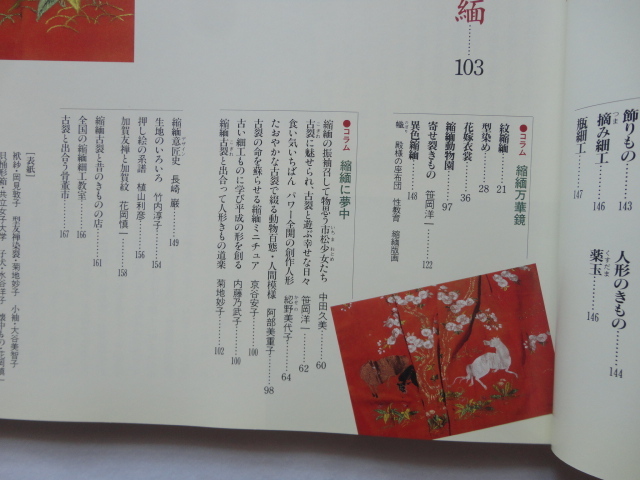 飾りもの……143
摘み細工……146
つま
瓶細工……147
人形のきもの……144
薬玉……146
くすだま
緬……103
●コラム 縮緬万華鏡
紋縮緬……21
型染め……28
花嫁衣裳……36
縮緬動物園……97
寄せ裂きもの 笹岡洋一……122
異色縮緬
蟻 殿様の座布団 性教育 縮緬版画
●コラム 縮緬に夢中
縮緬の振袖召して物思う市松少女たち 中田久美……60
古裂に魅せられ、古裂と遊ぶ幸せな日々 笹岡洋一……62
食い気いちばん パワー全開の創作人形 認野美代子……64
たおやかな古裂で綴る動物百態・人間模様 阿部美重子……98
古裂の命を蘇らせる縮緬ミニチュア 京谷安子……100
古い細工ものに学び平成の形を創る 内藤乃武子……100
縮緬古裂と出合って人形きもの道楽 菊地妙子……102
縮緬意匠史 長崎 巌……149
デザイン
生地のいろいろ 竹内淳子……154
押し絵の系譜 植山利彦……156
加賀友禅と加賀紋 花岡慎一……158
縮緬古裂と昔のきものの店……161
全国の縮緬細工教室……166
古裂と出合う骨董市……167
[表紙]
袱紗・岡見敦子 型友禅染裂・菊地妙子 小袖・大谷美智子